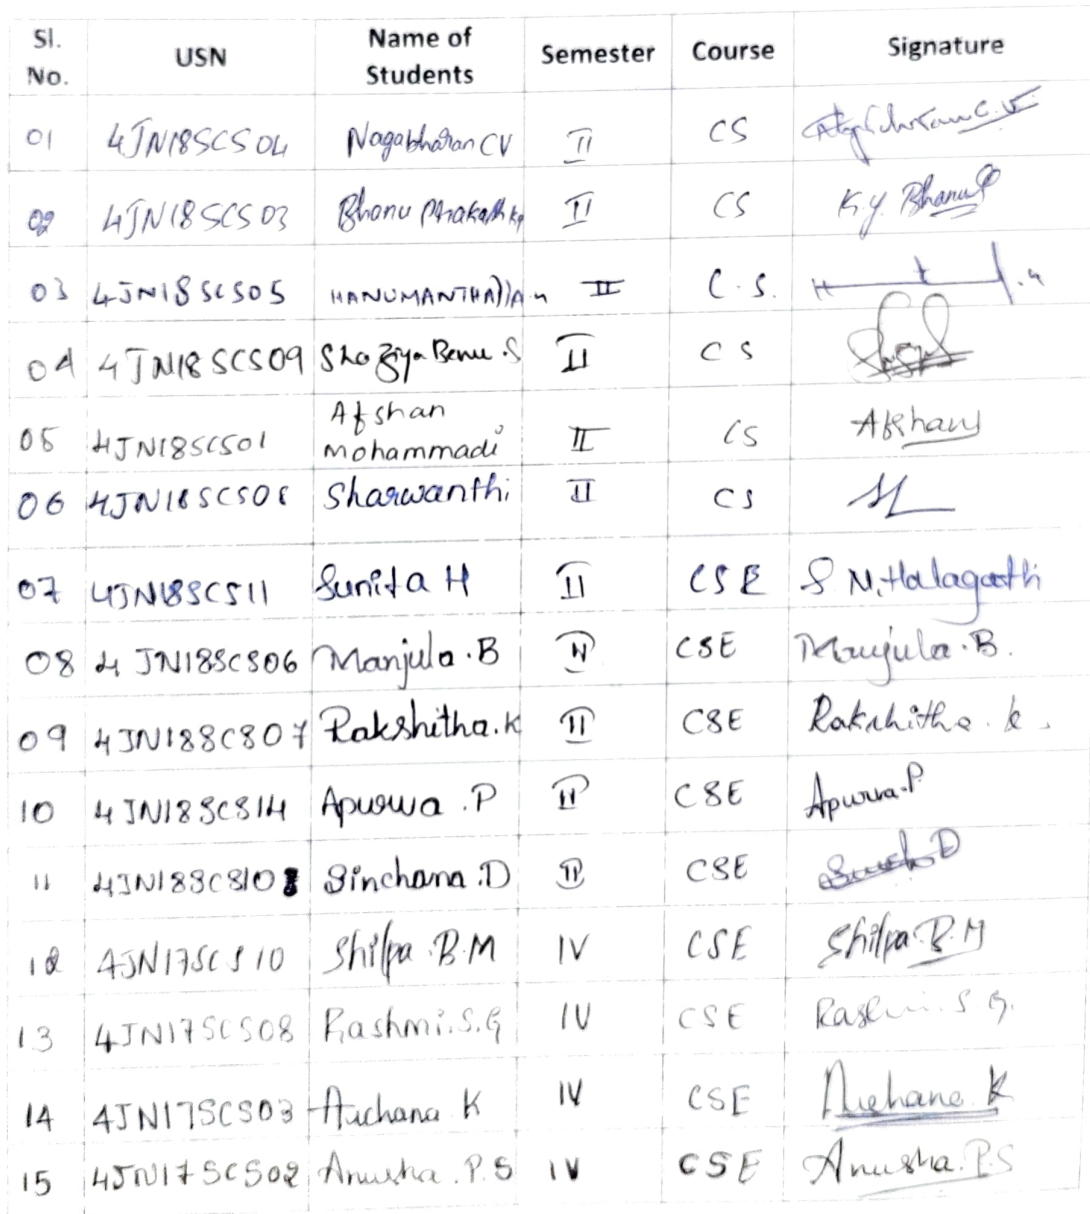 Sl. No. USN Name of Students Semester Course Signature
01 4JN18SCS04 Nagabharan CV II CS
02 4JN18SCS03 Bhanu Prakash II CS K.Y. Bhanu
03 4JN18SCS05 HANUMANTHA II C.S.
04 4JN18SCS09 Shaziya Benu .S II CS
05 4JN18SCS01 Afshan Mohammadi II CS Afshan
06 Sharwanthi II CS
07 4JN18SCS11 Sunita H II CSE S N.Halagatthi
08 4JN18SCS06 Manjula.B II CSE Manjula.B.
09 4JN18SCS07 Rakshitha.K II CSE Rakshitha.k.
10 4JN18SCS14 Apurwa .P II CSE Apurva.P
11 Sinchana.D II CSE
12 4JN17SCS10 Shilpa.B.M IV CSE Shilpa.B.M
13 4JN17SCS08 Rashmi.S.G IV CSE Rashmi.S G.
14 4JN17SCS03 Archana K IV CSE Archana K
15 4JN17SCS02 Anusha.P.S IV CSE Anusha.P.S